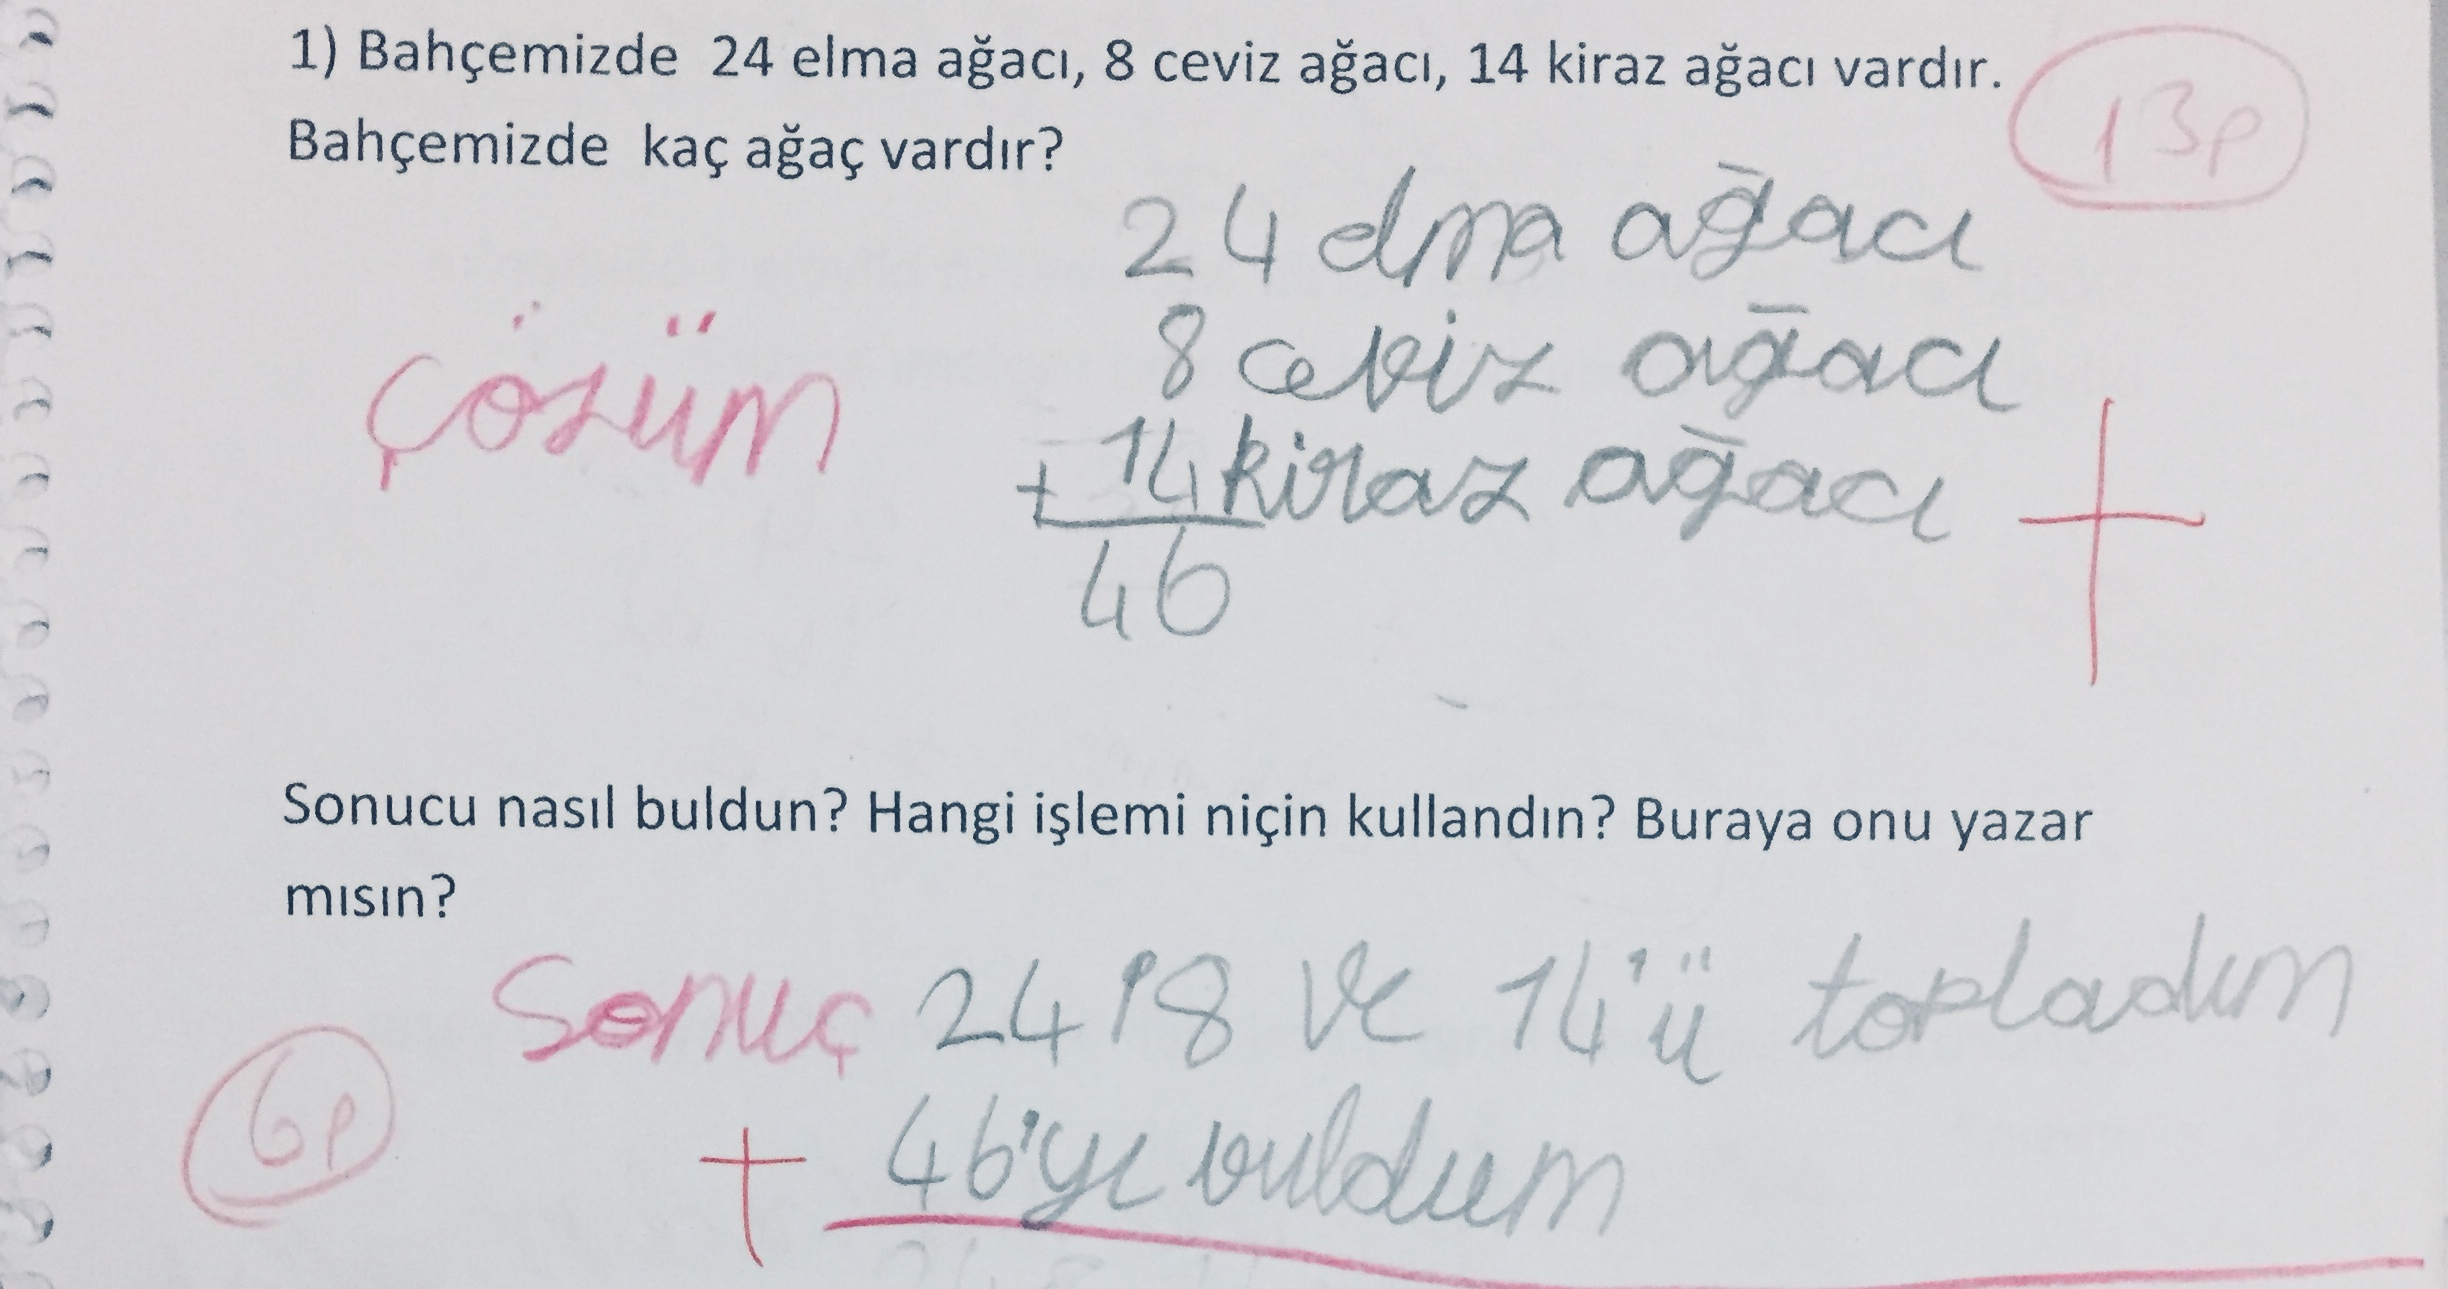 1) Bahçemizde 24 elma ağacı, 8 ceviz ağacı, 14 kiraz ağacı vardır.
13p
Bahçemizde kaç ağaç vardır?
24 elma ağacı
çözüm
8 ceviz ağacı
+ 14 kiraz ağacı
46
Sonucu nasıl buldun? Hangi işlemi niçin kullandın? Buraya onu yazar
mısın?
Sonuç 24 '8 ve 14'ü topladım
6p
46'yı buldum